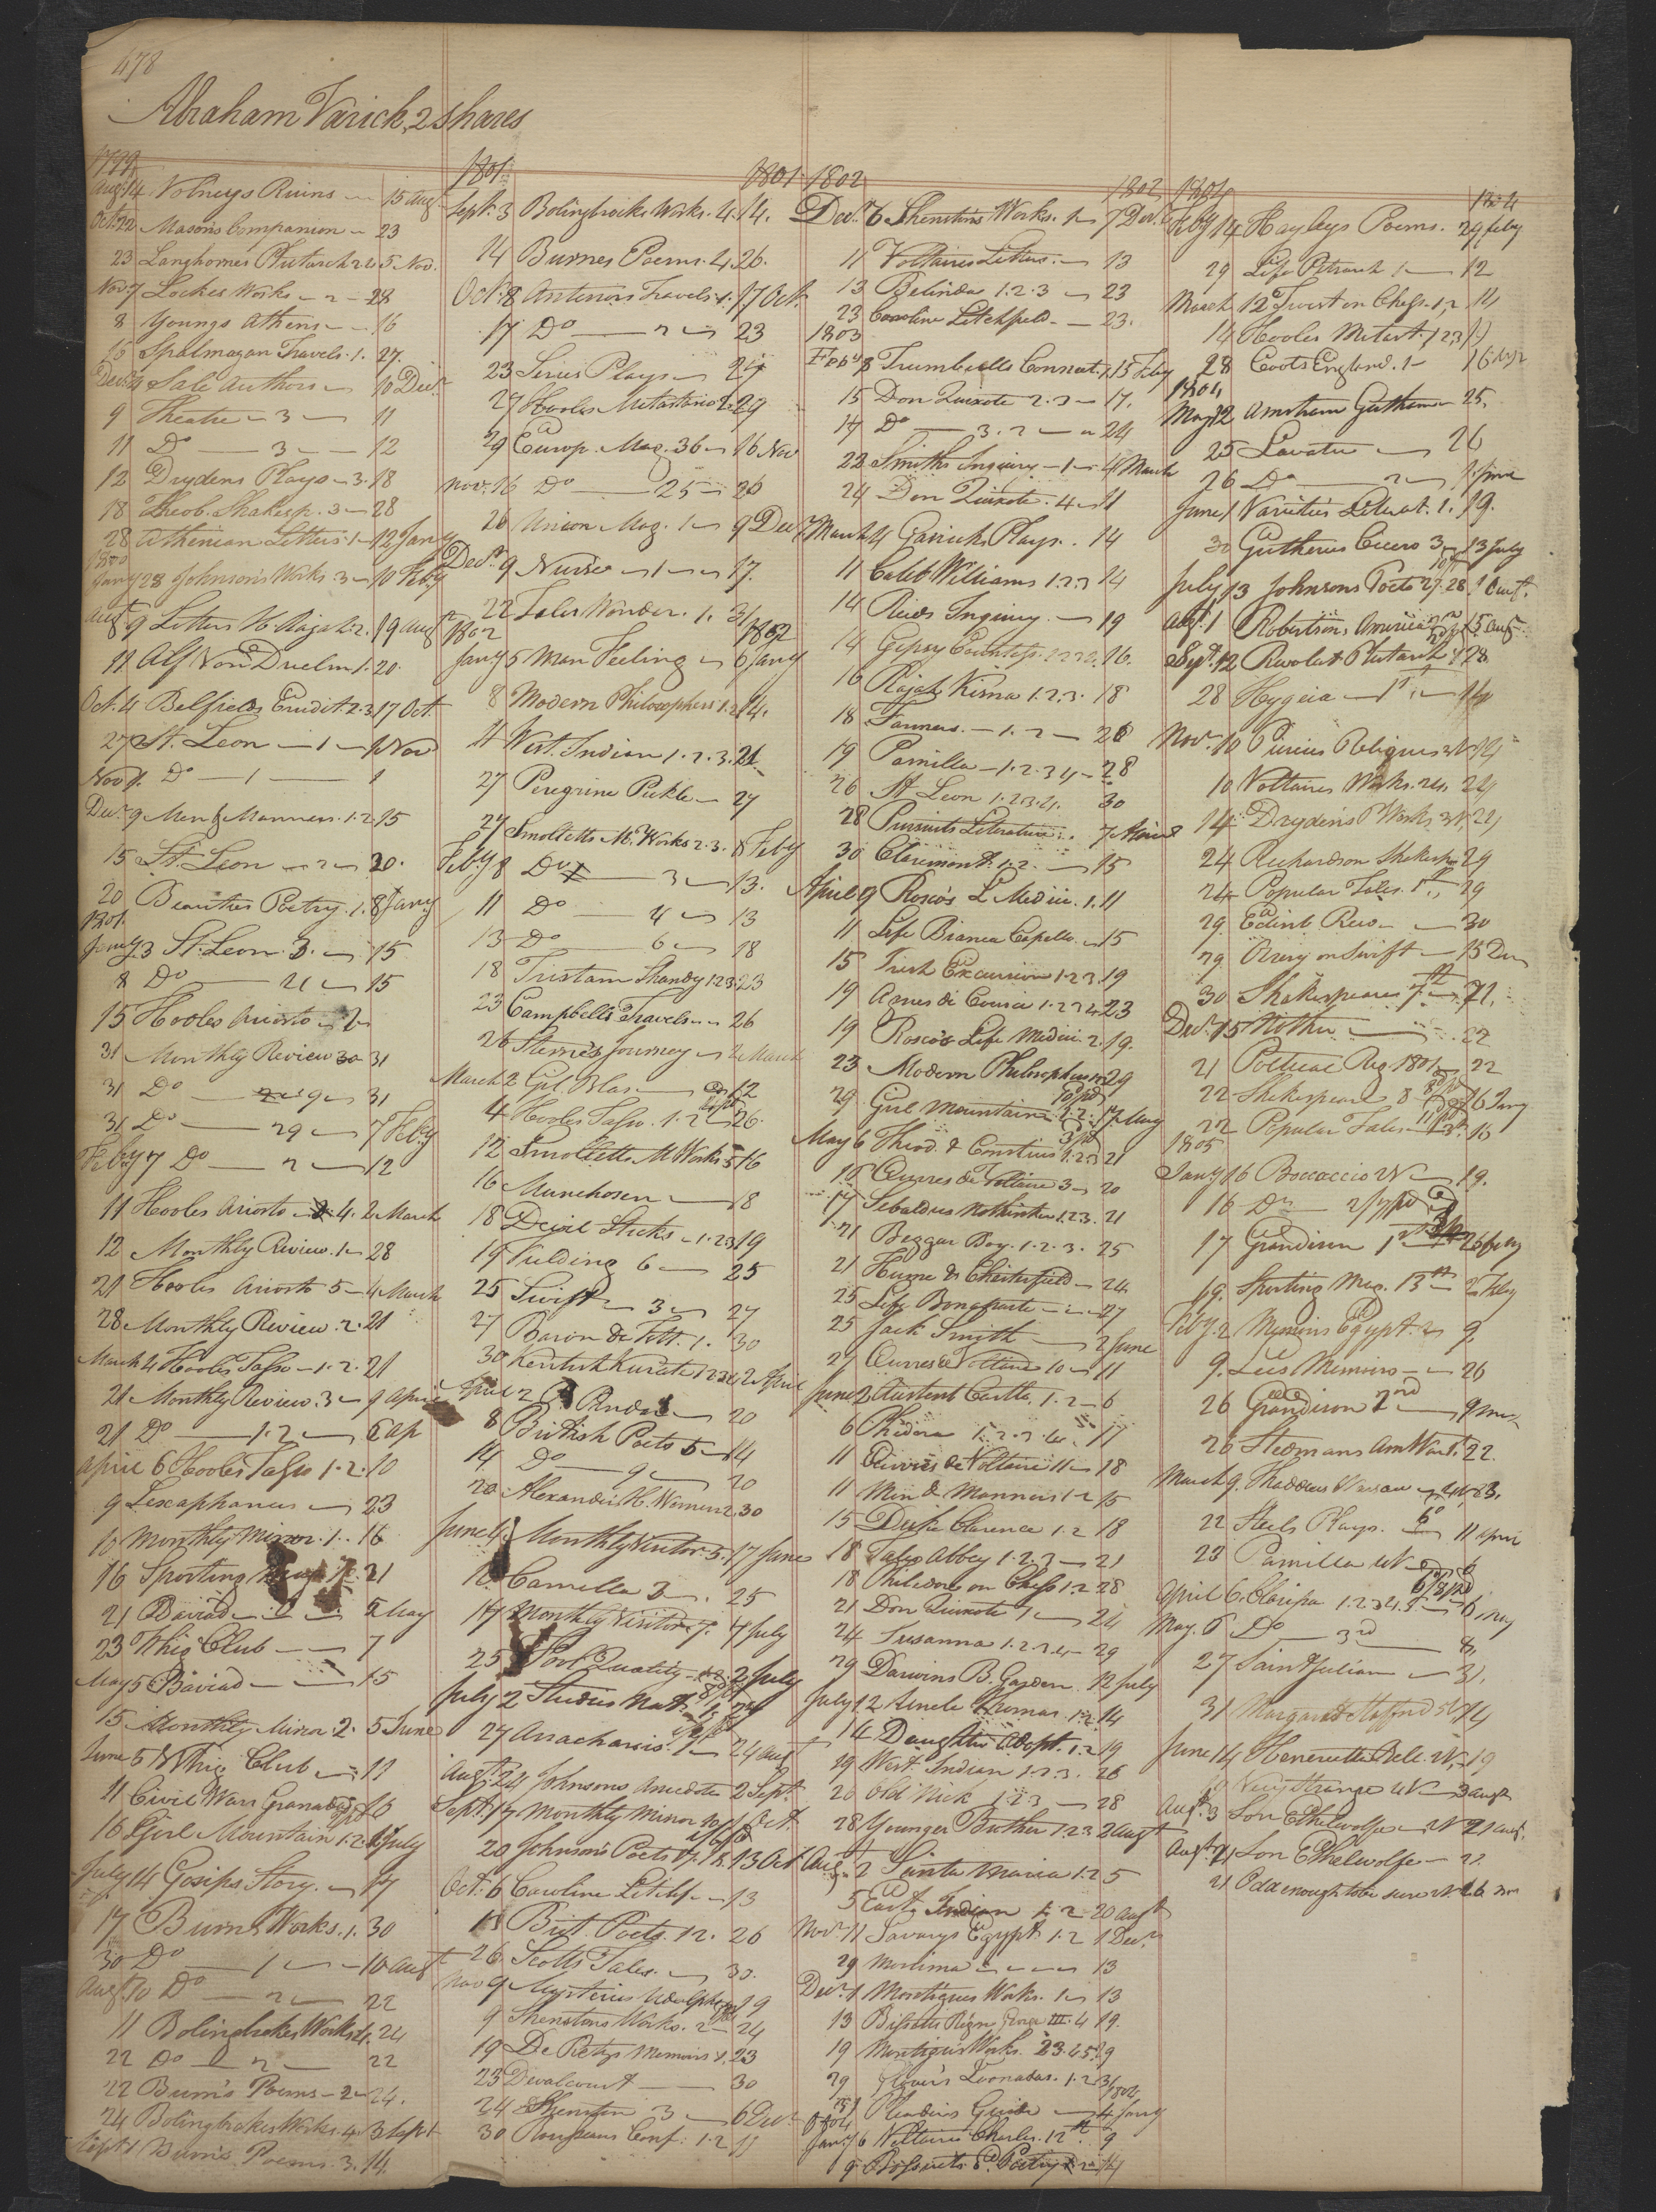 478
Abraham Varick, 2 shares
1799
Augt 14 Volneys Ruins 15 Augt
Oct. 22 Masons Companion 23
23 Langhornes Plutarch 2 5 Nov.
Nov 7 Lockes Works 2 28
8 Youngs Athens 16
16 Travels. 1. 27.
Decr 4 Sale Authors 10 Decr
9 Theatre 3 11
11 Do 3 12
12 Drydens Plays 3. 18
18 Theob. Shakesp. 3 28
28 Athenian Letters 1 12 Jany
1800
Jany 28 Johnson's Works 3 10 Feby
Augt 9 Letters H. Rajah 2. 19 Augt
11 Alf Von Duelm 1. 20.
Oct. 4 Belfields Erudit. 2.3. 17 Oct.
27 St. Leon 1 1 Nov
Nov 1. Do 1 1
Decr 9 Men & Manners. 1.2. 15
15 St. Leon 2 20.
20 Beauties Poetry. 1. 8 Jany
1801.
Jany 3 St. Leon 3. 15
8 Do 4 15
15 Hooles Ariosto
31 Monthly Review 30 31
31 Do 9 31
31 Do 29 7 Feby
Feby 7 Do 2 12
11 Hooles Ariosto 4. 2 March
12 Monthly Review. 1 28
21 Hooles Ariosto 5 4 March
28 Monthly Review. 2. 21
March 4 Hooles Tasso 1.2. 21
21 Monthly Review. 3 9 April
21 Do 1.2 6 Ap
April 6 Hooles Tasso 1.2. 10
9 Lexaphanes 23
10 Monthly Mirror. 1. 16
16 Sporting 21
21 Baviad 5 May
23 Whig Club 7
May 5 Baviad 15
15 Monthly Mirror 2. 5 June
June 5 Whig Club 11
11 Civil Wars Granada 16
16 Girl Mountain 1.2. July
July 14 Gosips Story. 17
17 Burns Works. 1. 30
30 Do 1 10 Augt
Augt 10 Do 2 22
11 Bolingbrokes Works 4. 24
22 Do 2 22
22 Burn's Poems 2 24.
24 Bolingbrokes Works. 4. 3 Sept
Sept 1 Burns Poems. 3. 14.
1801 1801
Sept. 3 Bolingbrokes Works. 4. 14.
14 Burnes Poems. 4. 26.
Oct. 8 Antenors Travels. 1. 17 Oct.
17 Do 2 23
23 Series Plays 24
27 Hooles Metastasio 2. 29
29 Europ. Mag. 36 16 Nov
Nov. 16 Do 25 26
26 Union Mag. 1 9 Decr
Decr 9 Nurse 1 17.
22 Tales Wonder. 1. 31
1802 1802
Jany 5 Man Feeling 6 Jany
8 Modern Philosophers 1.2 14.
11 West. Indian 1.2.3. 21
27 Peregrine Pickle 27
27 Smolletts M. Works 2.3. 8 Feby
Feby 8 Do 3 13.
11 Do 4 13
13 Do 6 18
18 Tristam Shandy 1.2.3. 23
23 Campbells Travels 26
26 Sterne's Journey 2 March
March 2 Gil Blas 12
4 Hooles Tasso. 1.2 26.
12 Smolletts M Works 5 16
16 Munchosen 18
18 Devil Sticks 1.2.3 19
19 Fielding 6 25
25 Swift 3 27
27 Baron de Tott. 1. 30
30 Kentish Kurate 1.2.3.4 2 April
April 2 Pindar 20
8 British Poets 5 14
14 Do 9 20
20 Alexander H. Women 2. 30
June 4. Monthly Visitor. 5. 17 June
Camilla 3 25
17 Monthly Visitor 7. 7 July
25 Fool Quality 2 July
July 2 Studies Nat. 24
27 Anacharsis. 1 24 Augt
Augt 24 Johnsons Anecdote 2 Sept.
Sept. 17 Monthly Mirror 10 1 Oct
20 Johnson's Poets 13 Oct
Oct. 6 Caroline Litchf. 13
13 Brit. Poets. 12. 26
26 Scotts Tales. 30.
Nov 9 Mysteries Udolpho 19
9 Shenstons Works. 2 24
19 De Retz's Memoirs 1. 23
23 Devalcourt 30
24 Shenston 3 6 Decr
30 Rousseaus Conf. 1.2 11
1802 1802
Decr 6 Shenston's Works. 1 7 Decr
11 Voltaires Letters. 13
13 Belinda 1.2.3 23
23 Caroline Litchfield 23.
1803
Feby 8 Trumbulls Connect. 1. 15 Feby
15 Don Quixote 2.3 17.
17 Do 3.2 24
22 Smiths Inquiry 1 4 March
24 Don Quixote. 4 11
March 4 Garricks Plays. 14
11 Caleb Williams 1.2.3 14
14 Reids Inquiry. 19
14 Gipsy Countess. 1.2.3. 16.
16 Rajah Kisna 1.2.3. 18
18 Farmers. 1.2 26
19 Camilla 1.2.3.4 28
26 St Leon 1.2.3.4. 30
28 Pursuits Literature. 7 April
30 Claremont. 1.2. 15
April 9 Rosco's L. Medici. 1. 11
11 Life Bianca Capello 15
15 Irish Excursion 1.2.3. 19
19 Agnes di Courci 1.2.3.4 23
19 Rosco's Life Medici. 2. 19.
23 Modern Philosophers 29
29 Girl Mountain 1.2. 17 May
May 6 Theod. & Constius 1.2.3 21
16 Œuvres de Voltaire 3 20
17 Sebaldus Nothinker 1.2.3. 21
21 Beggar Boy. 1.2.3. 25
21 Hume & Chesterfield 24
25 Life Bonaparte 27
25 Jack Smith 2 June
27 Œuvres de Voltaire 10 11
June 2 Austent Castle, 1.2 6
6 Phedora 1.2.3.4. 17
11 Œuvres de Voltaire 11 18
11 Men & Manners 1.2 15
15 Duke Clarence 1.2 18
18 Tales Abbey 1.2.3 21
18 Philidore on Chess 1.2 28
21 Don Quixote 1 24
24 Susanna 1.2.3.4 29
29 Darwins B. Garden. 12 July
July 12 Uncle Thomas. 1.2 14
14 Daughter Adopt. 1.2 19
19 West. Indian 1.2.3. 26
20 Old Nick 1.2.3 28
28 Younger Brother 1.2.3 2 Augt
Aug. 2 Santa Maria 1.2 5
5 East Indian 1.2 20 Augt
Nov. 11 Savarys Egypt 1.2 1 Decr
29 13
Decr 1 Montagues Works. 1 13
13 Bissetts Reign George III. 4 19.
19 Montagues Works. 2.3.4.5. 29
29 Glover's Leonadas. 1.2 31
1804
31 Readers Guide 4 Jany
1804
Jany 6 Voltaires Charles. 12th 9
9 14
1804 1804
Feby 14 Hayleys Poems. 29 Feby
29 Life Petrarch 1 12
March 12 Twist on Chess. 1.2 14
14 Hooles Metast. 1.2.3
28 Coots England. 1 16
1804
May 12 25.
25 Lavater 26
26 Do 2 1 June
June 1 Varieties Literat. 1. 19.
30 Guthries Cicero 3 13 July
July 13 Johnsons Poets 27. 28 1 Augt.
Augt. 1 Robertsons America 15 Augt
Sept. 12 Revolut. Plutarch 28
28 Hygeia 1st 14
Nov. 10 Percies Reliques 3 14
10 Voltaires Works. 24. 24
14 Drydens Works, 3 24
24 Richardson Shakesp. 29
24 Popular Tales. 1st 29
29 Edinb. Rev. 30
29 Orrery on Swift 15 Decr
30 Shakespeares 7th 21.
Decr 15 Mother 22
21 Political Reg. 1801 22
22 Shakespeare 8 16 Jany
22 Popular Tales 16
1805
Jany 16 Boccaccio 2 V 19.
16 Do
17 Grandison 1 26 Feby
19. Sporting Mag. 13th 2 Feby
Feby. 2 Memoirs Egypt. 2 9.
9. Lees Memoirs 26
26 Grandison 2nd 9 Mar
26 Stedmans Am War 1. 22.
March 9. Thaddeus Warsaw 4 V 23.
22 Steels Plays. 11 April
23 Camilla 4 V 6
April 6. Clarissa 1.2.3.4.5 6 May
May. 6 Do 3rd 8,
27 Saint Julian 31.
31 Margaret Strafford 5 V 14
June 14 Henrietta Bell. 2 V. 19
19 Very Strange 4 V 3 Augt
Augt. 3 Son Ethelwolfe 2 V 21 Augt.
Augt. 21 Son Ethelwolfe 22
21 Odd enough to be sure 2 V 26